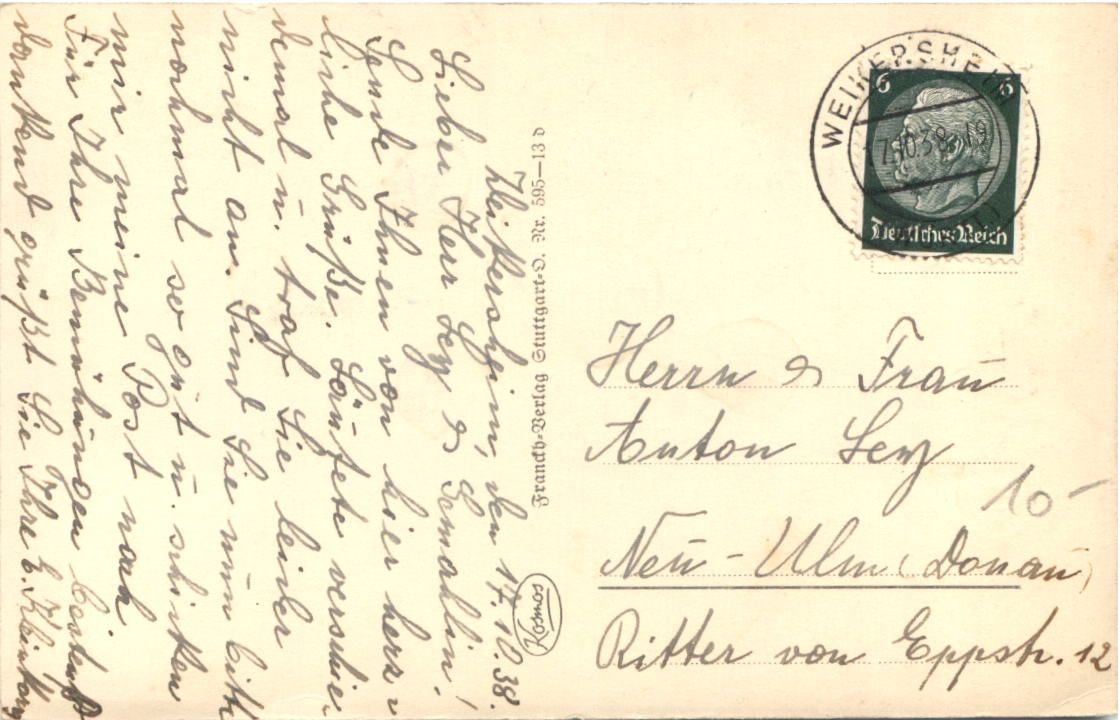 Weikersheim, den 17.10.38.
Lieber Herr Ley & Gemahlin!
Sende Ihnen von hier herz=
liche Grüße. Läutete verschie-
demal u. traf Sie leider
nicht an. Sind Sie nun bitte
nochmal so gut u. schicken
mir meine Post nach
Für Ihre Bemühungen bestens
dankend grüßt Sie Ihre
Franckh-Verlag Stuttgart-O. Nr. 595—13 D
Kosmos
WEIKERSHEIM
17.10.38.-19
6 6
Deutsches Reich
Herrn & Frau
Anton Ley
10-
Neu-Ulm (Donau)
Ritter von Eppstr. 12